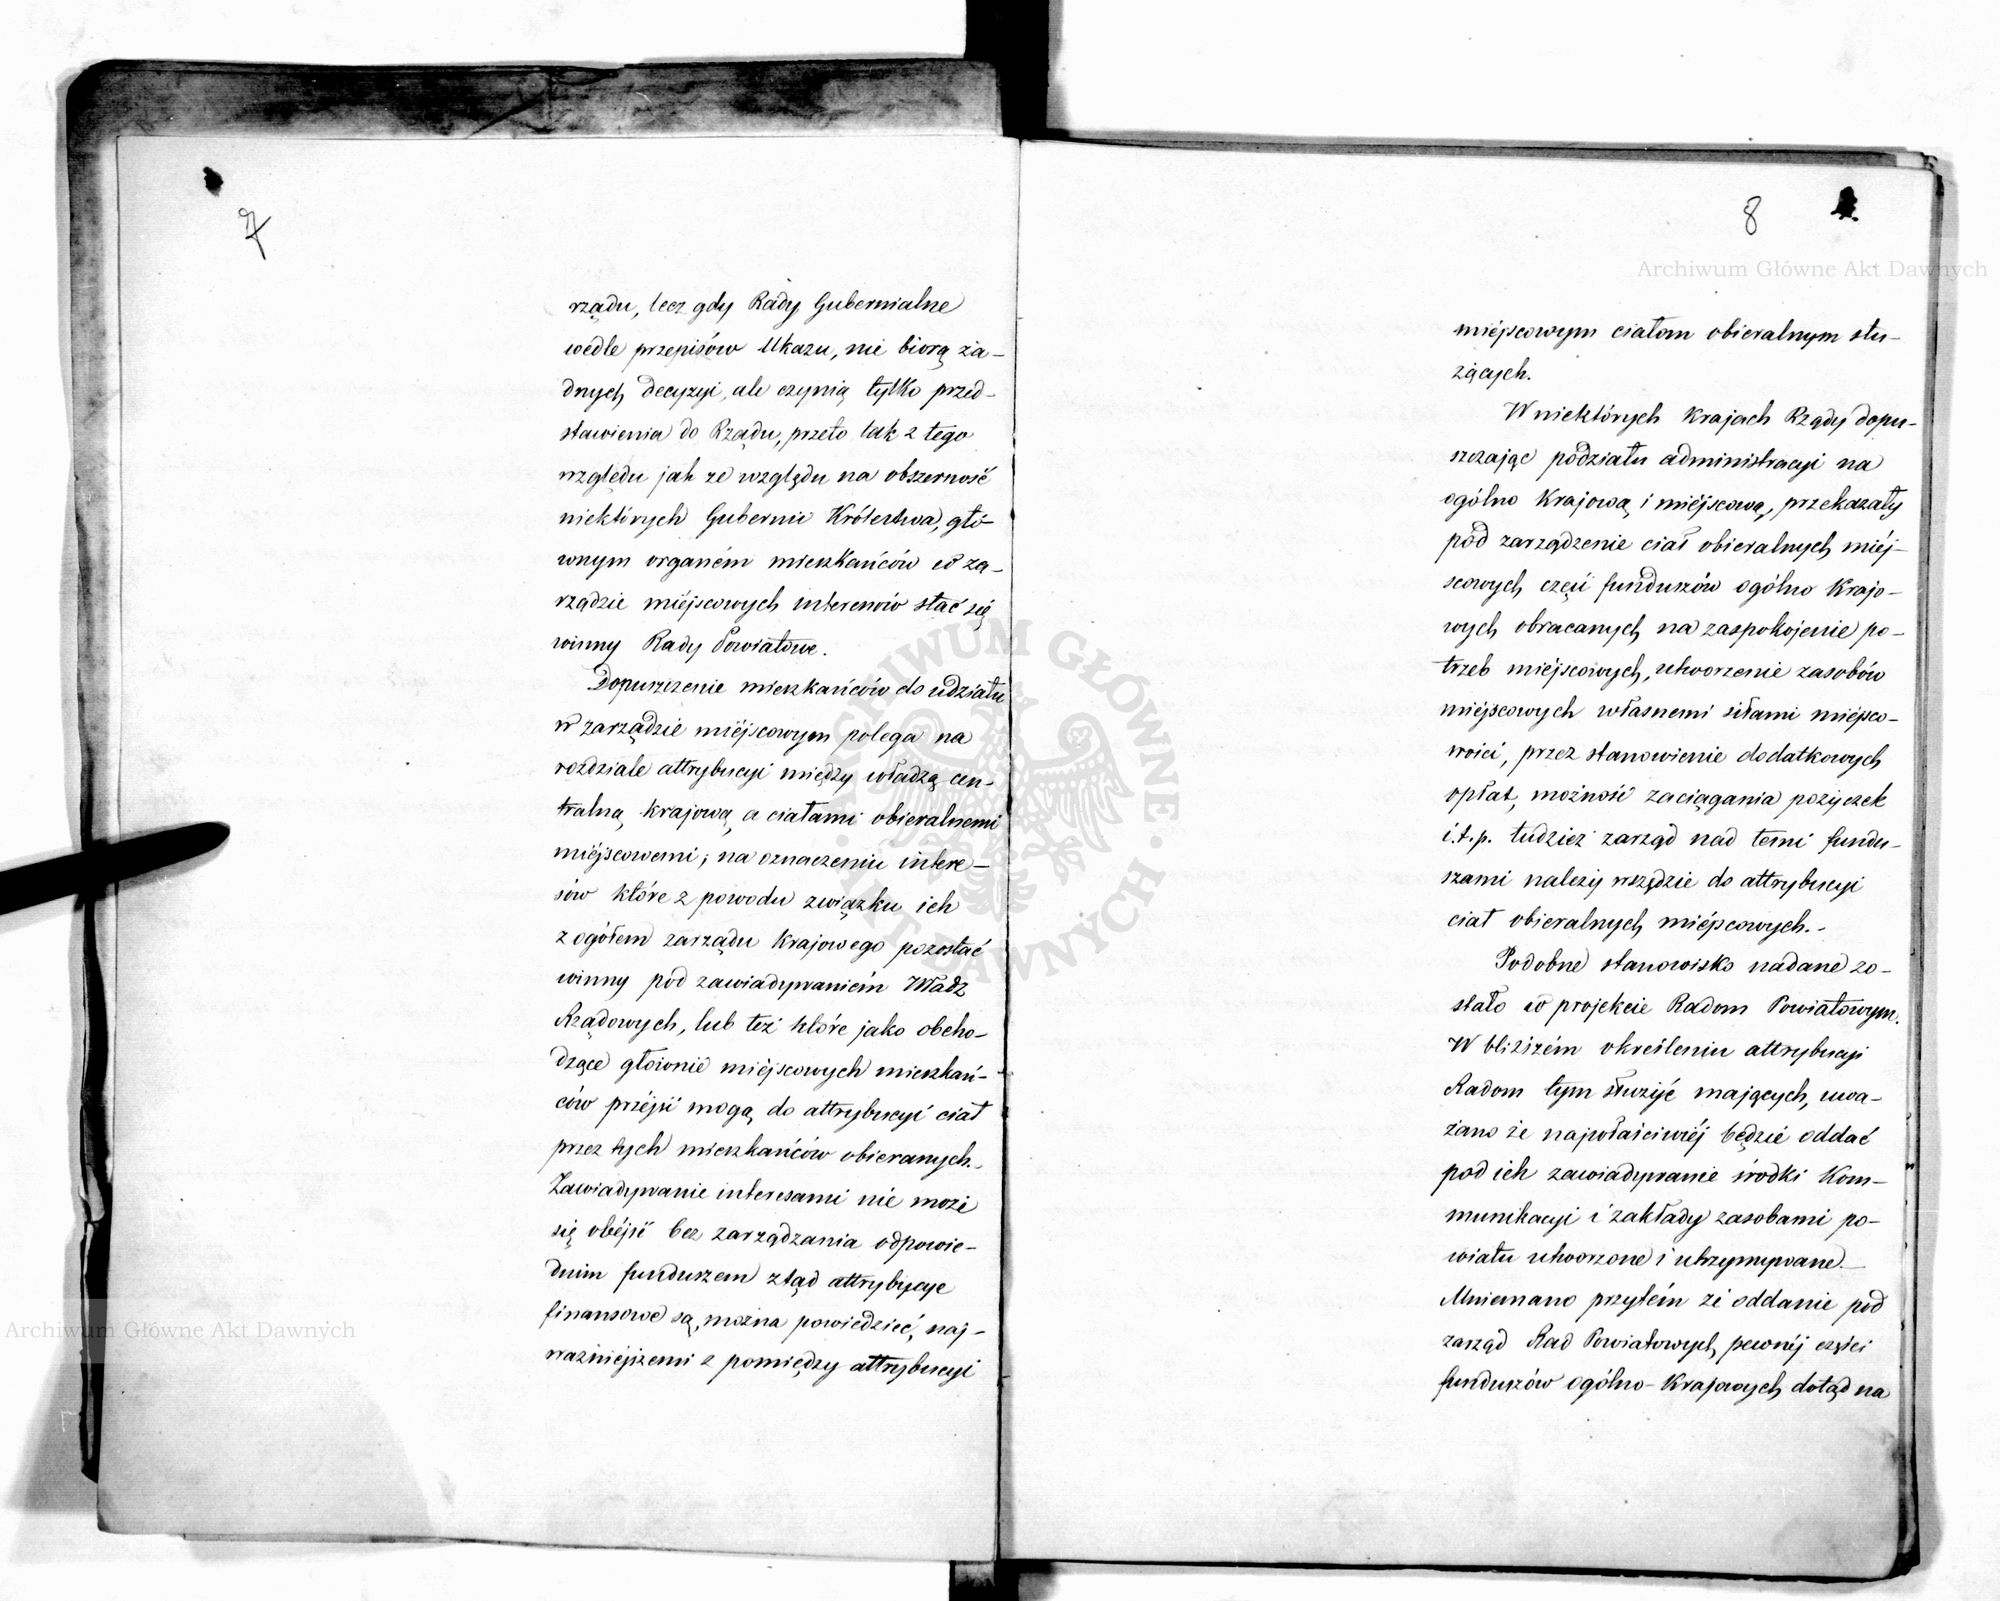 7
rządu, lecz gdy Rady Gubernialne
wedle przepisów Ukazu, nie biorą ża-
dnych decyzyi, ale czynią tylko przed-
stawienia do Rządu, przeto tak z tego
względu jak ze względu na obszerność
niektórych Gubernii Królestwa, głó-
wnym organém mieszkańców w za-
rządzie miéjscowych interesów stać się
winny Rady Powiatowe.
Dopuszczenie mieszkańców do udziału
w zarządzie miéjscowym polega na
rozdziale attrybucyi między władzą cen-
tralną krajową, a ciałami obieralnemi
miéjscowemi; na oznaczeniu intere-
sów które z powodu związku ich
z ogółem zarządu Krajowego pozostać
winny pod zawiadywaniém Władz
Rządowych, lub też które jako obcho-
dzące głównie miéjscowych mieszkań-
ców przéjść mogą do attrybucyi ciał
przez tych mieszkańców obieranych.
Zawiadywanie interesami nie może
się obéjść bez zarządzania odpowie-
dnim funduszem ztąd attrybucye
finansowe są, można powiedzieć, naj-
ważniéjszemi z pomiędzy attrybucyi
8
Archiwum Główne Akt Dawnych
miéjscowym ciałom obieralnym słu-
żących.
W niektórych Krajach Rządy dopu-
szczając podziału administracyi na
ogólno Krajową i miéjscową, przekazały
pod zarządzenie ciał obieralnych miéj-
scowych część funduszów ogólno Krajo-
wych obracanych na zaspokojenie po-
trzeb miéjscowych, utworzenie zasobów
miéjscowych własnemi siłami miéjsco-
wości, przez stanowienie dodatkowych
opłat, możność zaciągania pożyczek
i.t.p. tudzież zarząd nad temi fundu-
szami należy wszędzie do attrybucyi
ciał obieralnych miéjscowych.-
Podobne stanowisko nadane zo-
stało w projekcie Radom Powiatowym.
W bliższém określeniu attrybucyi
Radom tym służyć mających, uwa-
żano że najwłaściwiéj będzie oddać
pod ich zawiadywanie środki Kom-
munikacyi i zakłady zasobami po-
wiatu utworzone i utrzymywane.
Mniemano przytém że oddanie pod
zarząd Rad Powiatowych pewnéj części
funduszów ogólno-Krajowych dotąd na
Archiwum Główne Akt Dawnych
ARCHIWUM GŁÓWNE AKT DAWNYCH